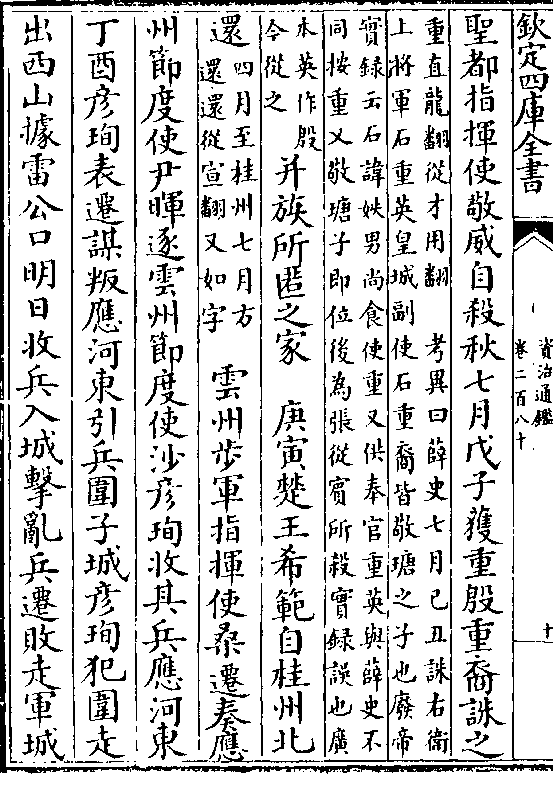 欽定四庫全書
資治通鑑
卷二百八十
十
聖都指揮使敬威自殺秋七月戊子獲重殷重裔誅之
重直龍翻從才用翻　考異曰薛史七月己丑誅右衛
上將軍石重英皇城副使石重裔皆敬瑭之子也廢帝
實録云石諱姝男尚食使重乂供奉官重英與薛史不
同按重乂敬瑭子即位後為張從賓所殺實録誤也廣
本英作殷
今從之
并族所匿之家　庚寅楚王希範自桂州北
還
四月至桂州七月方
還還從宣翻又如字
雲州步軍指揮使桑遷奏應
州節度使尹暉逐雲州節度使沙彦珣收其兵應河東
丁酉彦珣表遷謀叛應河東引兵圍子城彦珣犯圍走
出西山據雷公口明日收兵入城擊亂兵遷敗走軍城